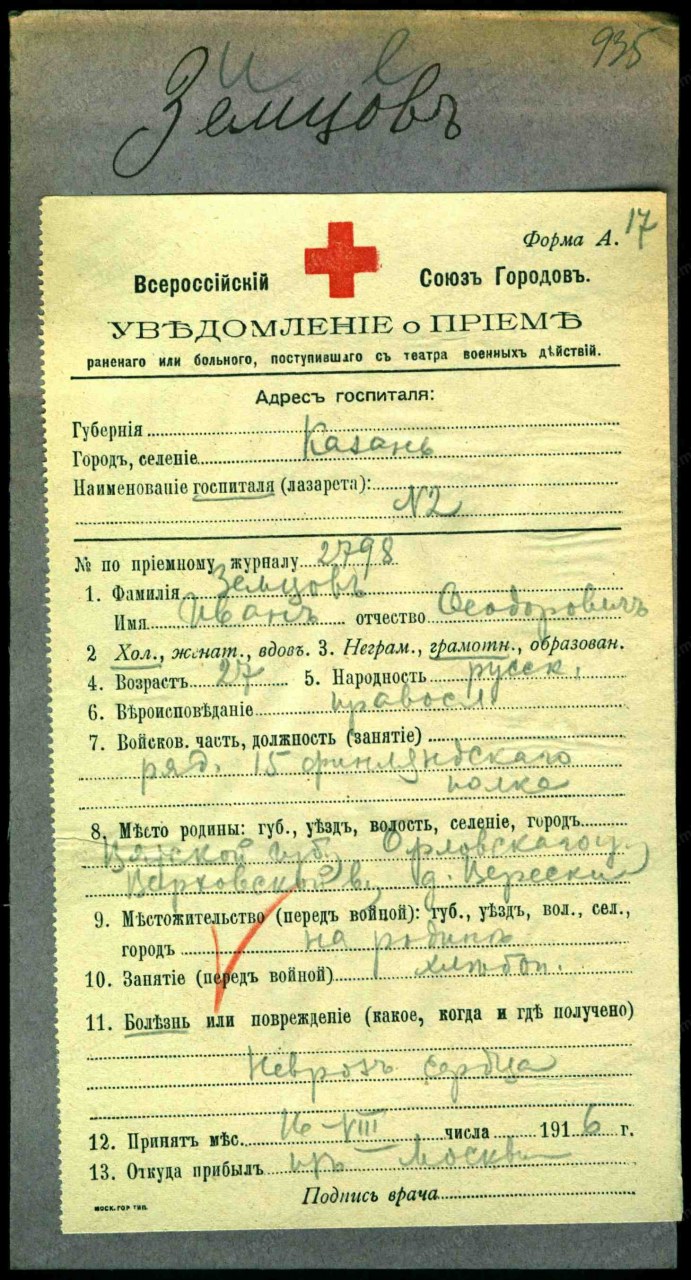 935
И е
Земцовъ
17
Форма А.
Всероссійскій Союзъ Городовъ.
УВѢДОМЛЕНІЕ о ПРІЕМѢ
раненаго или больного, поступившаго съ театра военныхъ дѣйствій.
Адресъ госпиталя:
Губернія
Городъ, селеніе Казань
Наименованіе госпиталя (лазарета):
N2
№ по пріемному журналу 2798
1. Фамилія Земцовъ
Имя Иванъ отчество Феодоровичъ
2 Хол., женат., вдовъ. 3. Неграм., грамотн., образован.
4. Возрастъ 27 5. Народность русск.
6. Вѣроисповѣданіе правосл
7. Войсков. часть, должность (занятіе)
ряд. 15 финляндскаго
полка
8. Мѣсто родины: губ., уѣздъ, волость, селеніе, городъ
Вятской губ., Орловскаго у,
Верховской в, д.
9. Мѣстожительство (передъ войной): губ., уѣздъ, вол., сел.,
городъ на родинѣ
10. Занятіе (передъ войной) хлѣбоп.
11. Болѣзнь или поврежденіе (какое, когда и гдѣ получено)
Неврозъ сердца
12. Принятъ мѣс. VIII числа 1916 г.
13. Откуда прибылъ Москвы
Подпись врача
МОСК. ГОР ТИП.